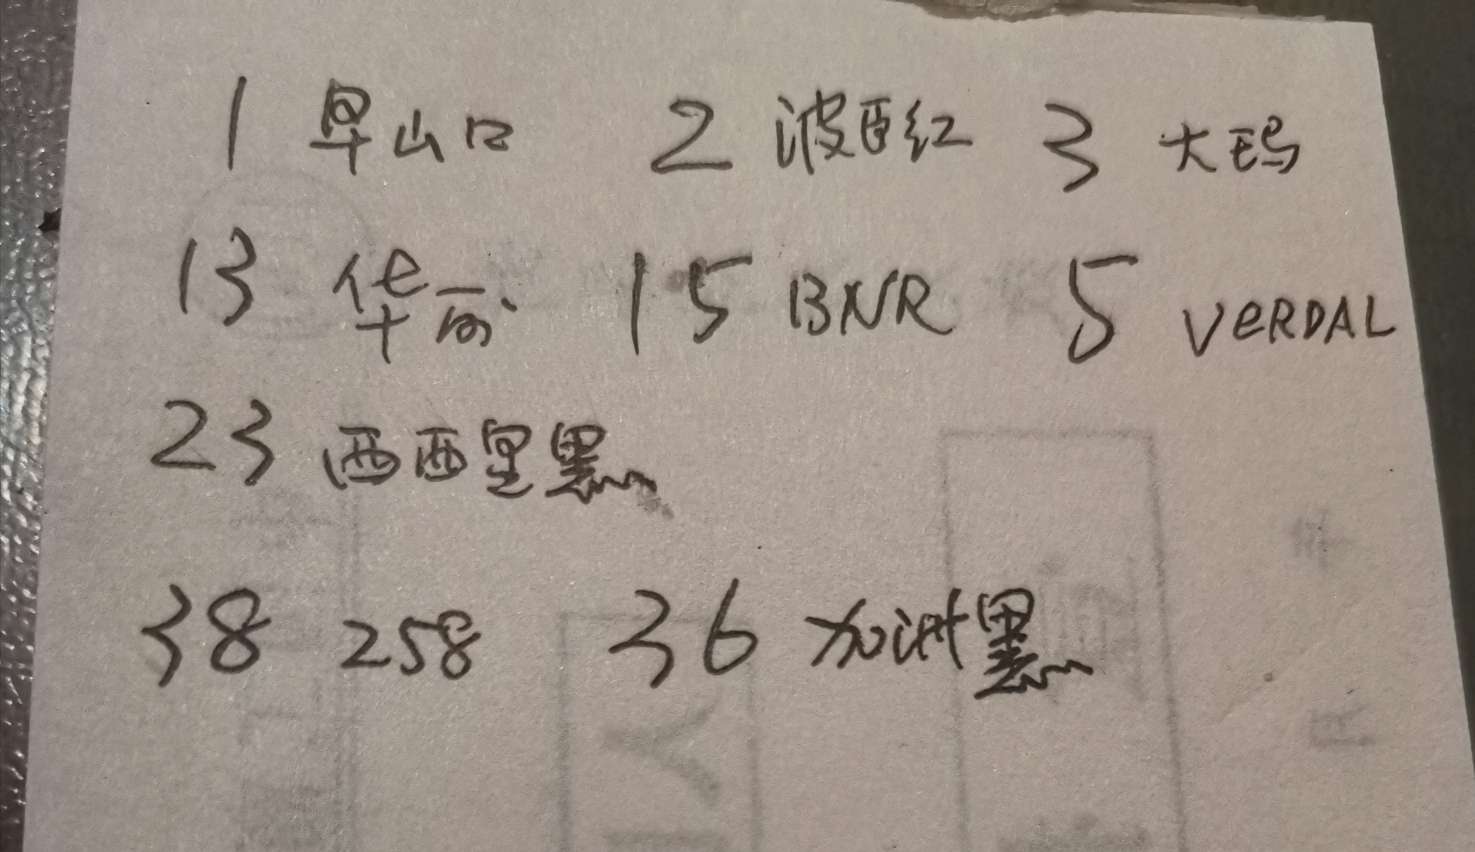 1 早山口 2 波西红 3 大玛
13 华丽 15 BNR 5 VERDAL
23 西西里黑
38 258 36 加洲黑